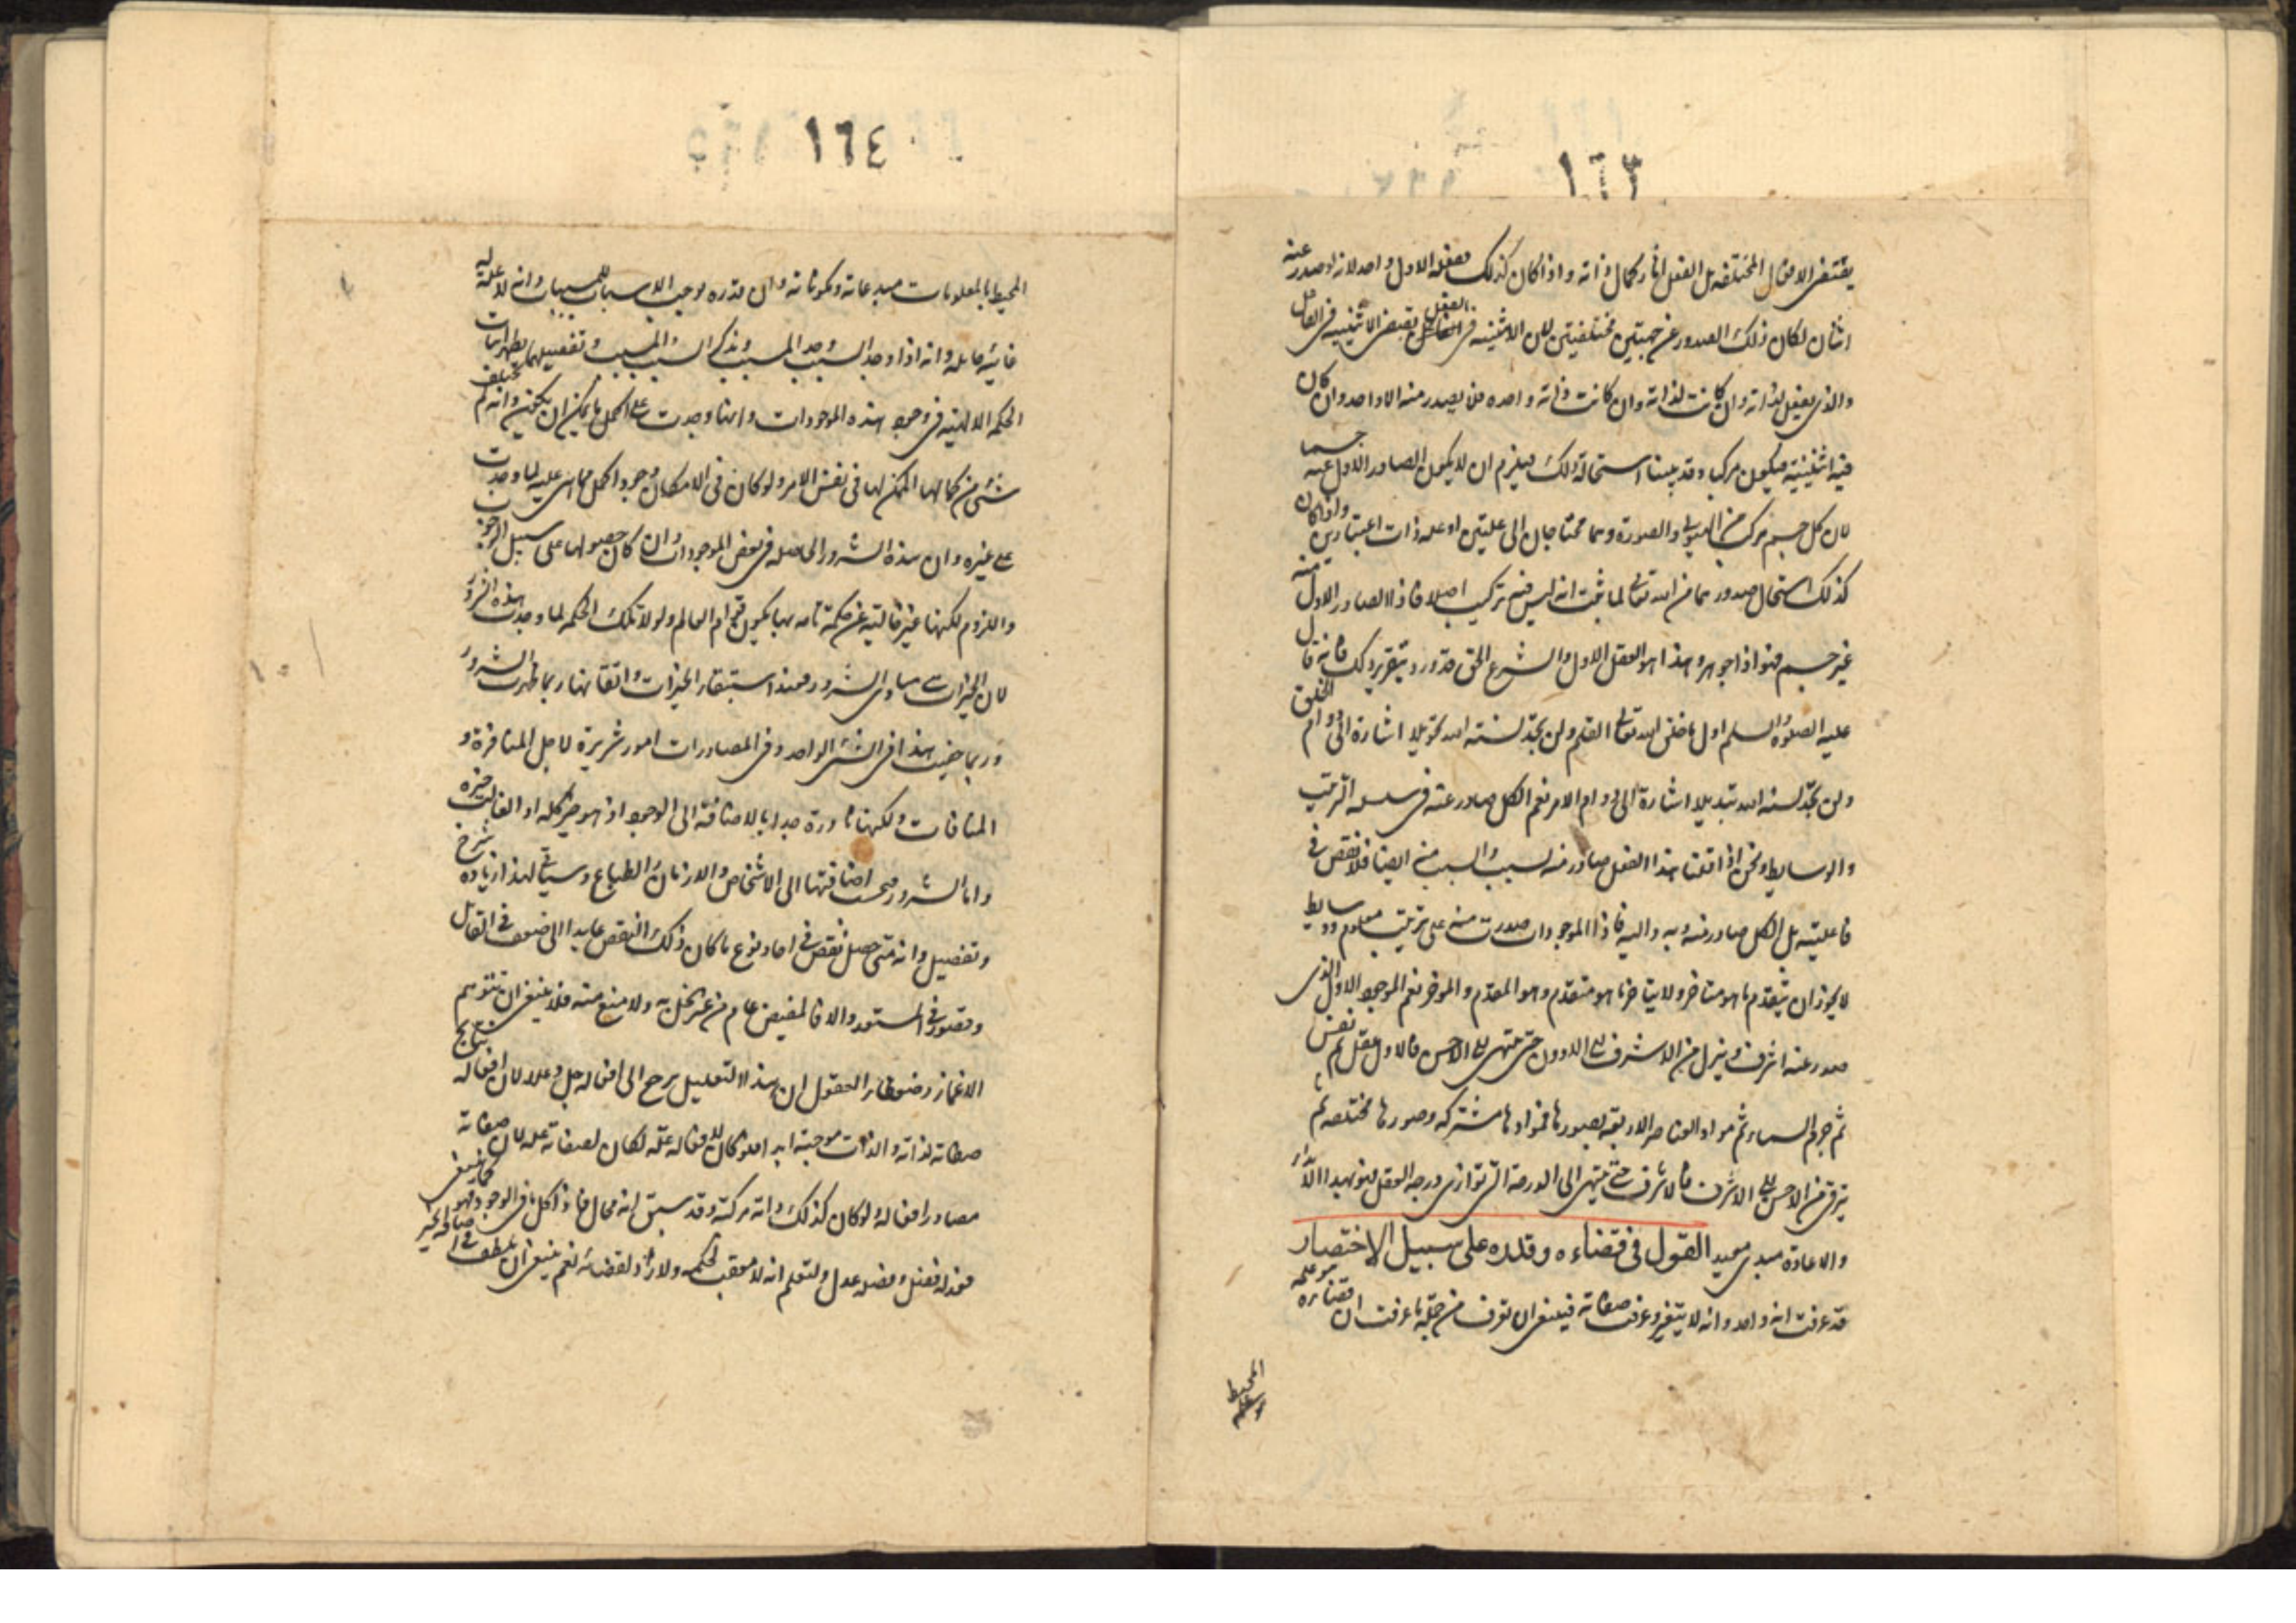 ١٦٣
يقتضي الافعال المختلفة بل الفعل اثار كمال ذاته واذا كان كذلك ففعله الاول واحد لانه لو صدر عنه
اثنان لكان ذلك الصدور عن جهتين مختلفتين لان الاثنينية في الفعل تقتضي الاثنينية في الفاعل
والذي يفعل بذاته وان كانت لذاته وان كانت ذاته واحدة فلا يصدر منه الا واحد وان كان
فيه اثنينية فيكون مركبا وقد بينا استحالة ذلك فيلزم ان لا يكون الصادر الاول عنه جسما
لان كل جسم مركب من الهيولى والصورة وهما محتاجان الى علتين او علة ذات اعتبارين واذا كان
كذلك استحال صدورهما من الله تعالى لما ثبت انه ليس فيه تركيب اصلا فاذا الصادر الاول منه
غير جسم فهو اذا جوهر وهذا هو العقل الاول والشرع الحق قد ورد بتقرير ذلك فانه قال
عليه الصلوة والسلم اول ما خلق الله تعالى القلم ولن تجد لسنة الله تحويلا اشارة الى دوام الخلق
ولن تجد لسنة الله تبديلا اشارة الى دوام الامر نعم الكل صادر عنه في سلسلة الترتيب
والوسايط ونحن اذا قلنا هذا الفعل صادر منه بسبب والسبب منه ايضا فلا نقص في
فاعليته بل الكل صادر منه وبه واليه فاذا الموجودات صدرت منه على ترتيب معلوم ووسايط
لا يجوز ان يتقدم ما هو متاخر ولا يتاخر ما هو متقدم وهو المقدم والموخر نعم الموجود الاول الذي
صدر عنه اشرف وينزل من الاشرف الى الادون حتى ينتهي الى الاخس فالاول عقل ثم نفس
ثم جرم السماء ثم مواد العناصر الاربعة بصورها فموادها مشتركة وصورها مختلفة ثم
يترقى من الاخس الى الاشرف فالاشرف حتى ينتهي الى الدرجة التي توازي درجة العقل فهو بهذا الابداء
والاعادة مبدئ معيد القول في قضاءه وقدره على سبيل الاختصار
قد عرفت انه واحد وانه لا يتغير وعرفت صفاته فينبغي ان تعرف من جملة ما عرفت ان قضاءه هو علمه
المحيط
١٦٤
المحيط بالمعلومات مبدعاته ومكوناته وان قدره موجب الاسباب للمسببات وانه لا علة له
غائية حاملة وانه اذا وجد السبب وجد المسبب وبذكر السبب والمسبب وتفصيلهما يظهر اثبات
الحكمة الالهية في وجود هذه الموجودات وانها وجدت على اكمل ما يمكن ان يكون وانه لم يتخلف
شئ من كمالها الممكن لها في نفس الامر ولو كان في الامكان وجود اكمل مما هي عليه لما وجدت
على غيره وان هذه الشرور الحاصلة في بعض الموجودات وان كان حصولها على سبيل الوجوب
واللزوم لكنها غير خالية عن حكمة تامة بها يكون قوام العالم ولولا تلك الحكمة لما وجدت هذه الشرور
لان الخيرات هي مبادي الشرور فعند استبقاء الخيرات واتقانها ربما ظهرت الشرور
وربما خفيت هذا في الشئ الواحد وفي المصادرات امور شريرة لاجل المنافرة و
المنافات ولكنها نادرة جدا بالاضافة الى الوجود اذ هو خير كله او الغالب خيره
واما الشرور فبحسب اضافتها الى الاشخاص والازمان والطباع وسياتي لهذا زيادة شرح
وتفصيل وانه متى حصل نقص في احاد نوع ما كان ذلك النقص عايدا الى ضعف في القابل
وقصور في المستعد والا فالفيض عام من غير بخل به ولا منع منه فلا ينبغي ان يتوهم
الاغمار وضعفاء العقول ان هذا التعليل يرجع الى افعاله جل وعلا لان افعاله نتايج
صفاته لذاته والذات موجبة ابدا فلو كان لافعاله علة لكان لصفاته علة لان صفاته
مصادر افعاله ولو كان كذلك فذاته مركبة وقد سبق انه محال فاذا كل ما في الوجود فهو كما ينبغي
فعدله فضل وفضله عدل ولتعلم انه لا معقب لحكمه ولا راد لقضائه نعم ينبغي ان